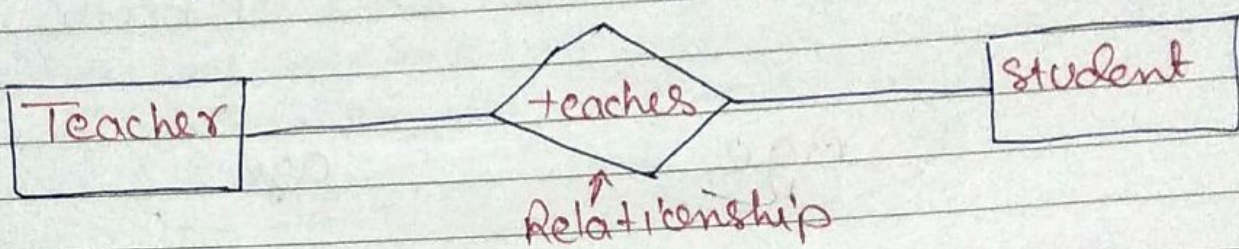 Teacher
teaches
Student
Relationship